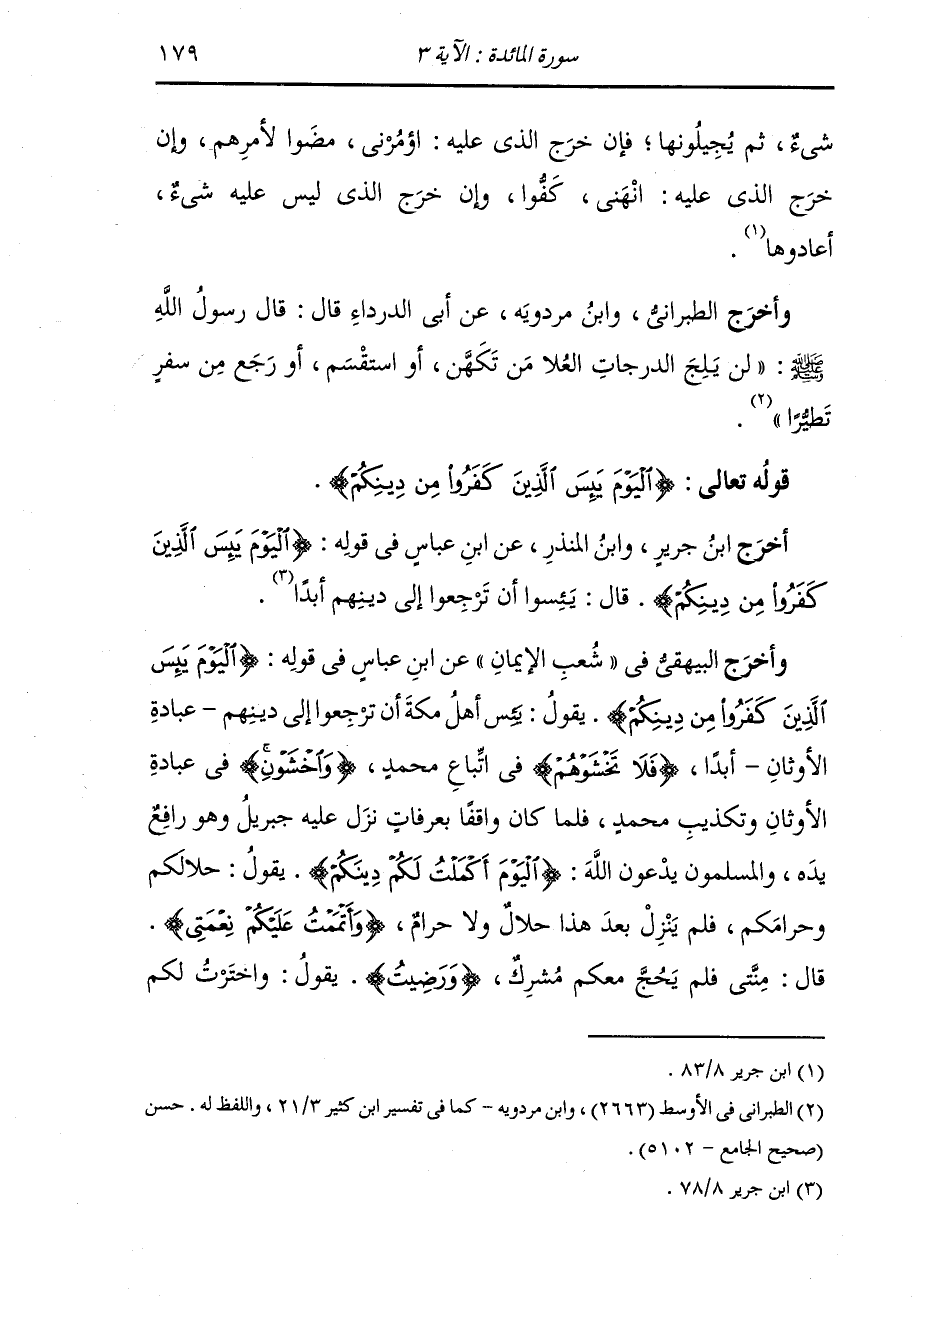 سورة المائدة : الآية ٣ ١٧٩
شىءٌ ، ثم يُجِيلُونها ؛ فإن خرَج الذى عليه : اؤمُرْنى ، مضَوا لأمرِهم ، وإن
خرَج الذى عليه : انْهَنى ، كَفُّوا ، وإن خرَج الذى ليس عليه شىءٌ ،
أعادوها(١) .
وأخرَج الطبرانىُّ ، وابنُ مردويَه ، عن أبى الدرداءِ قال : قال رسولُ اللَّهِ
ﷺ : « لن يَلِجَ الدرجاتِ العُلا مَن تَكَهَّن ، أو استقْسَم ، أو رَجَع مِن سفرٍ
تَطيُّرًا »(٢) .
قولُه تعالى : ﴿ٱلْيَوْمَ يَئِسَ ٱلَّذِينَ كَفَرُوا۟ مِن دِينِكُمْ﴾ .
أخرَج ابنُ جريرٍ ، وابنُ المنذرِ ، عن ابنِ عباسٍ فى قولِه : ﴿ٱلْيَوْمَ يَئِسَ ٱلَّذِينَ
كَفَرُوا۟ مِن دِينِكُمْ﴾ . قال : يَئِسوا أن تَرْجِعوا إلى دينِهم أبدًا(٣) .
وأخرَج البيهقىُّ فى « شُعبِ الإيمانِ » عن ابنِ عباسٍ فى قولِه : ﴿ٱلْيَوْمَ يَئِسَ
ٱلَّذِينَ كَفَرُوا۟ مِن دِينِكُمْ﴾ . يقولُ : يَئِس أهلُ مكةَ أن ترْجِعوا إلى دينِهم – عبادةِ
الأوثانِ – أبدًا ، ﴿فَلَا تَخْشَوْهُمْ﴾ فى اتِّباعِ محمدٍ ، ﴿وَٱخْشَوْنِۚ﴾ فى عبادةِ
الأوثانِ وتكذيبِ محمدٍ ، فلما كان واقفًا بعرفاتٍ نزَل عليه جبريلُ وهو رافِعٌ
يدَه ، والمسلمون يدْعون اللَّهَ : ﴿ٱلْيَوْمَ أَكْمَلْتُ لَكُمْ دِينَكُمْ﴾ . يقولُ : حلالَكم
وحرامَكم ، فلم يَنْزِلْ بعدَ هذا حلالٌ ولا حرامٌ ، ﴿وَأَتْمَمْتُ عَلَيْكُمْ نِعْمَتِى﴾ .
قال : مِنَّتى فلم يَحُجَّ معكم مُشرِكٌ ، ﴿وَرَضِيتُ﴾ . يقولُ : واختَرْتُ لكم
(١) ابن جرير ٨٣/٨ .
(٢) الطبرانى فى الأوسط (٢٦٦٣) ، وابن مردويه – كما فى تفسير ابن كثير ٢١/٣ ، واللفظ له . حسن
(صحيح الجامع – ٥١٠٢) .
(٣) ابن جرير ٧٨/٨ .